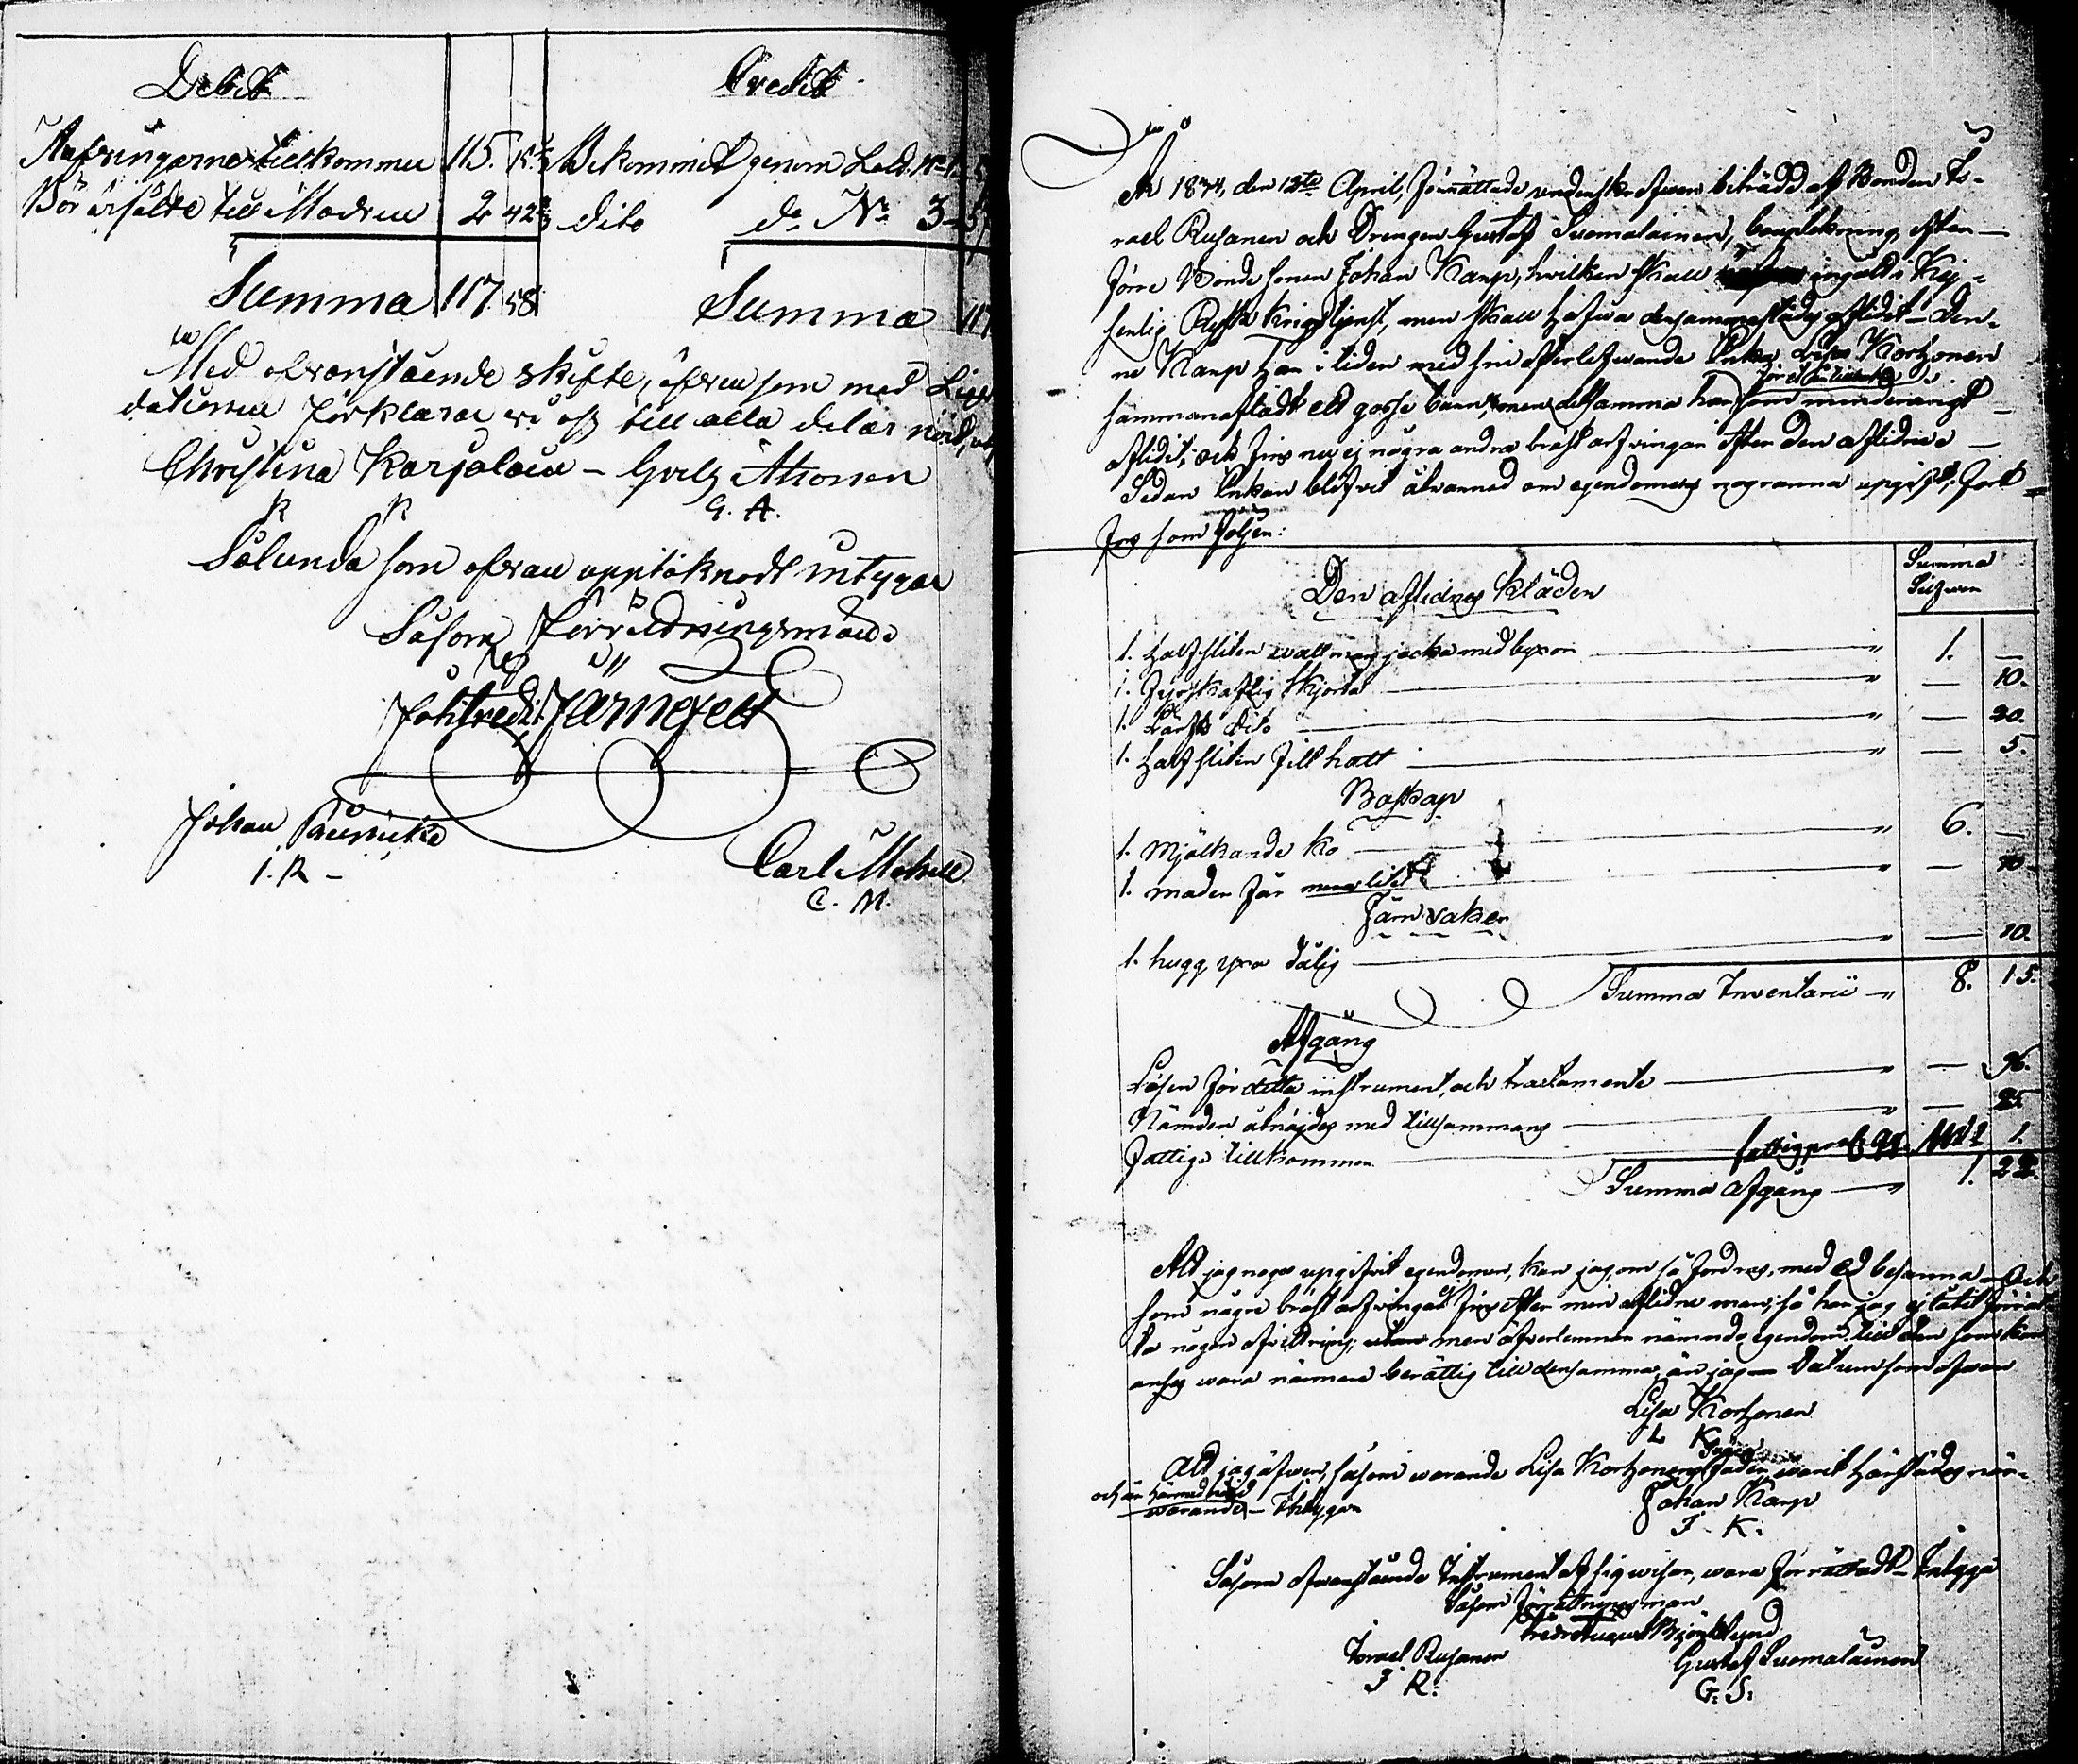 Debet
Arfvingarne tillkommer 115. 15
Bör ärsätte till Modren 2 42
Summa 117. 58
Credit
Bekommit genom Lott N
dito do No 3
Summa 117
Med ofvanstående skifte, äfven som med
förklarar vi oss till alla delar nöjd
Christina Karjalain – Grels Ahonen
K K G. A.
Sålunda som ofvan upptecknadt intygar
Såsom Förrättningsmän
Joh: Fredr: Järnefelt
Johan
I. R –
Carl
C. M.
År 1834, den 12te April, förrättade undertecknad äfven biträdd af Bonden Is-
rael Rusanen och Drengen Gustaf Suomalainen, bouptekning efter
förre Bonde sonen Johan Karp, hvilken skall ingått i Kej-
serlig Rysk krigstjenst, men skall hafva dersammastädes aflidit – Den-
ne Karp har i tiden med sin efterlefvande Enka Lisa Korhonen
sammanaflat ett gosse barn, men detsamma har som minderårigt
aflidit, och fins nu ej några andra bröst arfvingar efter den aflidne
Sedan Enkan blifvit åtvarnad om egendomens nogranna uppgift, fort
fors som följer:
Den aflidnes kläder
Summa
Silfver
1. halfsliten vallmans jacka med byxor " 1. —
1. fyrskaftig skjorta " — 10.
1. Lärfts dito " — 20.
1. halfsliten filt hatt " — 5.
Boskap
1. Mjölkande ko " 6. —
1. moder får " — 70.
Järn saker
1. hugg yxa dålig " — 10.
Summa Inventarii " 8. 15.
Afgång
Lösen för detta instrument, och tractamente " — 96.
Nämden åtnöjdes med tillsammans " — 25.
Fattige tillkommer 1.
Summa afgång " 1. 22.
Att jag noga uppgifvit egendomen, kan jag, om så fordras, med ed besanna – Och
som några bröst arfvingar ej fins efter min aflidne man, så har jag ej låtit förrät-
ta någon afvittring, men äfverlemnar nämnde egendom till den som kan
anses vara närmare berättig till densamma, än jag – Datum som ofvan
Lisa Korhonen
L K
Att jag äfven, såsom varande Lisa Korhonens fader, varit härstädes när-
varande – Intygar
Johan Karp
J. K.
Såsom ofvanstående Instrument af sig viser, vara förrättadt – Intyga
Såsom förrättningsman
Fredr August Björklund
Israel Rusanen
I R:
Gustaf Suomalainen
G: S: